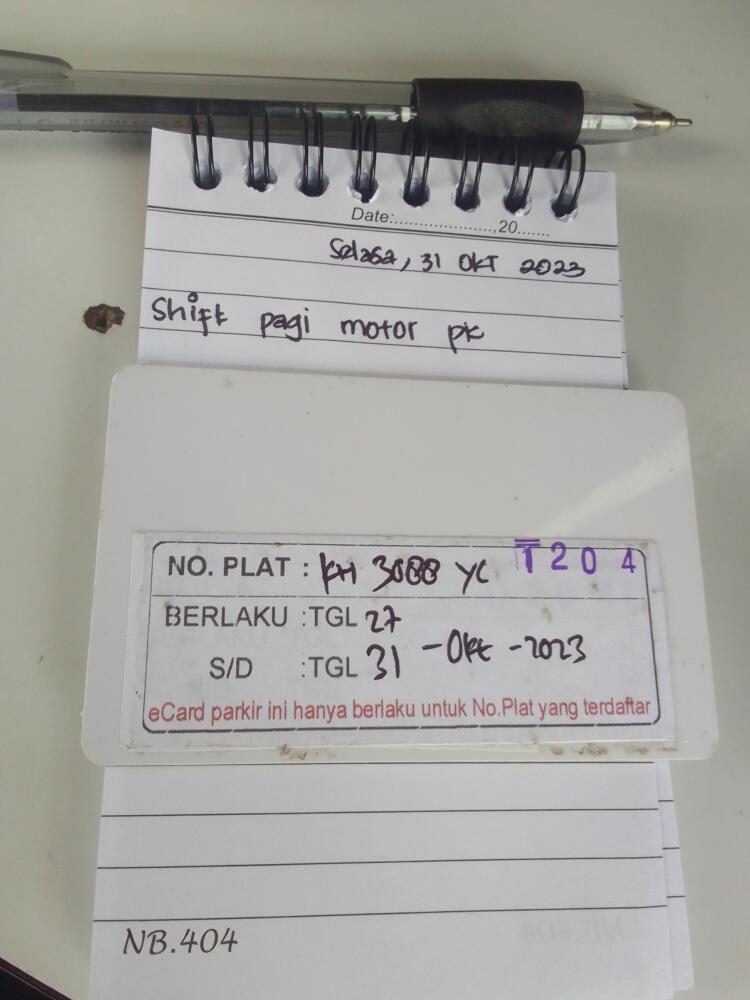 Date:....................,20.......
Selasa, 31 OKT 2023
Shift pagi motor pk
NO. PLAT : KH 3088 YC T204
BERLAKU :TGL 27
S/D :TGL 31 -Okt -2023
eCard parkir ini hanya berlaku untuk No.Plat yang terdaftar
NB.404